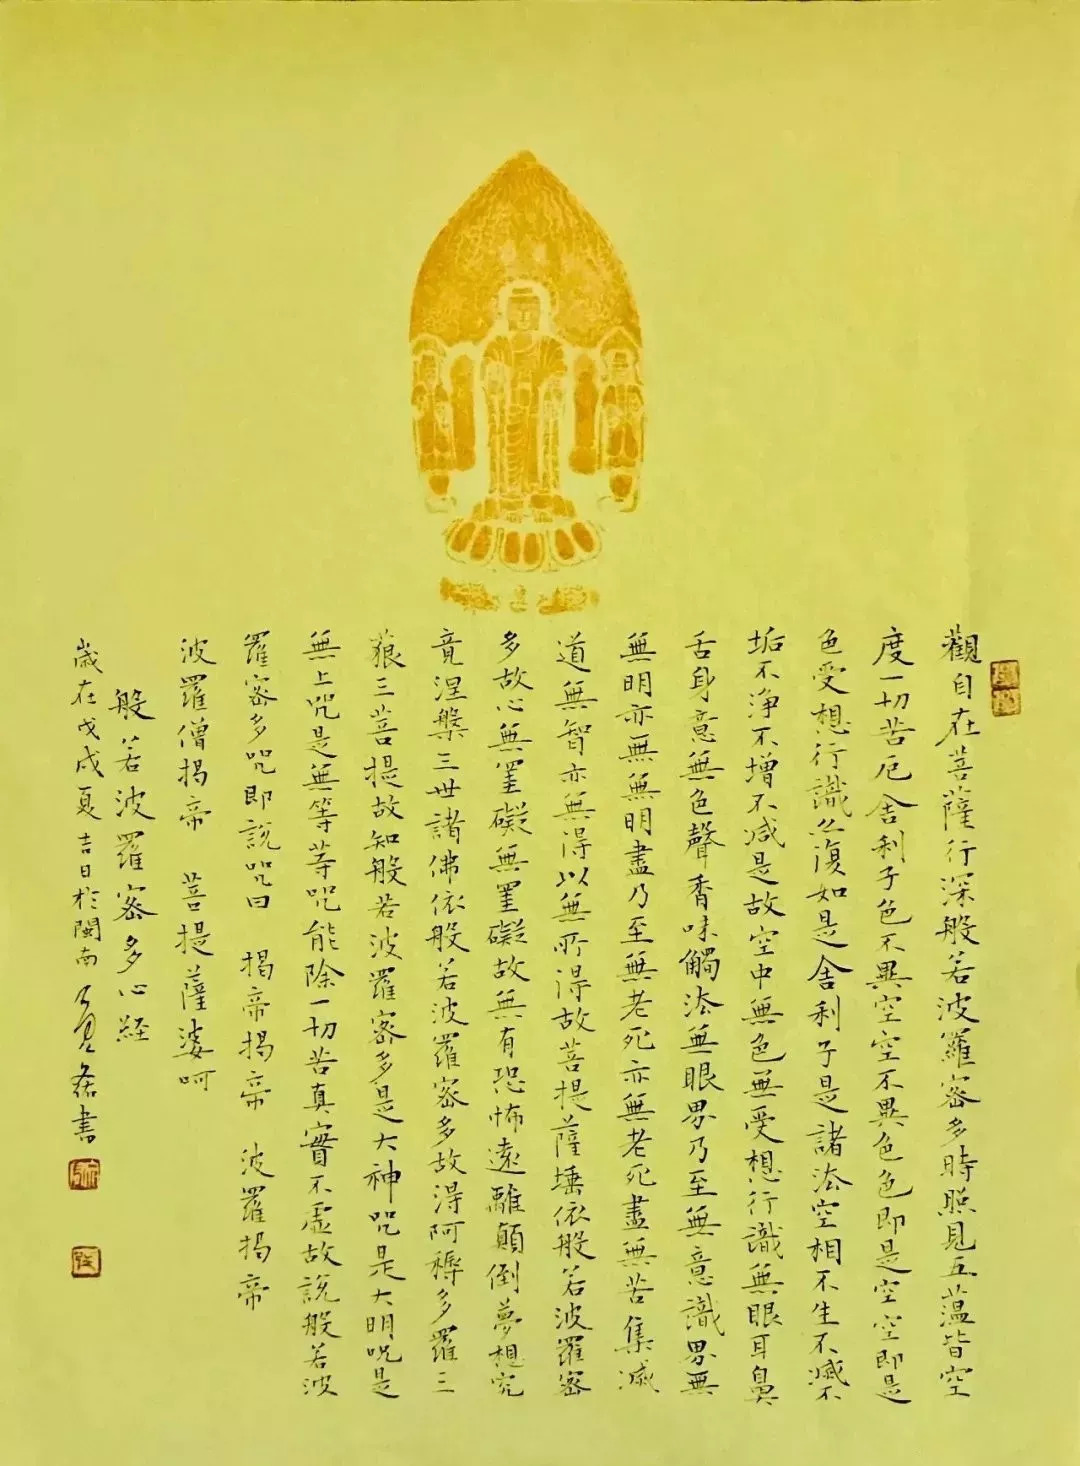 觀自在菩薩行深般若波羅密多時照見五蕴皆空
度一切苦厄舍利子色不異空空不異色色即是空空即是
色受想行識亦復如是舍利子是諸法空相不生不滅不
垢不淨不增不減是故空中無色無受想行識無眼耳鼻
舌身意無色聲香味觸法無眼界乃至無意識界無
無明亦無無明盡乃至無老死亦無老死盡無苦集滅
道無智亦無得以無所得故菩提薩埵依般若波羅密
多故心無罣礙無罣礙故無有恐怖遠離顛倒夢想究
竟涅槃三世諸佛依般若波羅密多故得阿耨多羅三
藐三菩提故知般若波羅密多是大神咒是大明咒是
無上咒是無等等咒能除一切苦真實不虛故説般若波
羅密多咒即説咒曰 揭帝揭帝 波羅揭帝
波羅僧揭帝 菩提薩婆呵
般若波羅密多心経
歲在戊戌夏吉日於閩南 書